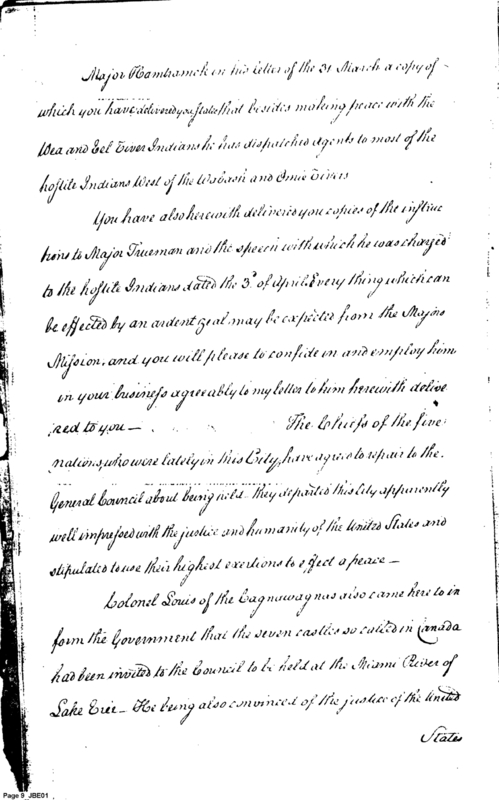 Major Hamtramck in his letter of the 31 March a copy of
which you have delivered you states that besides making peace with the
Wea and Eel River Indians he has dispatched agents to most of the
hostile Indians West of the Wabash and Omie Rivers
You have also herewith delivered you copies of the instruc
tions to Major Trueman and the speech with which he was charged
to the hostile Indians dated the 3d of April. Every thing which can
be effected by an ardent zeal may be expected from the Majors
Mission, and you will please to confide in and employ him
in your business agreeably to my letter to him herewith delive
red to you — The Chiefs of the five
nations, who were lately in this City, have agreed to repair to the
General Council about being held — they departed this City apparently
well impressed with the justice and humanity of the United States and
stipulated to use their highest exertions to effect a peace —
Colonel Louis of the Cagnawagnas also came here to in
form the Government that the seven castles so called in Canada
had been invited to the Council to be held at the Miami River of
Lake Erie — He being also convinced of the justice of the United
States
Page 9_JBE01